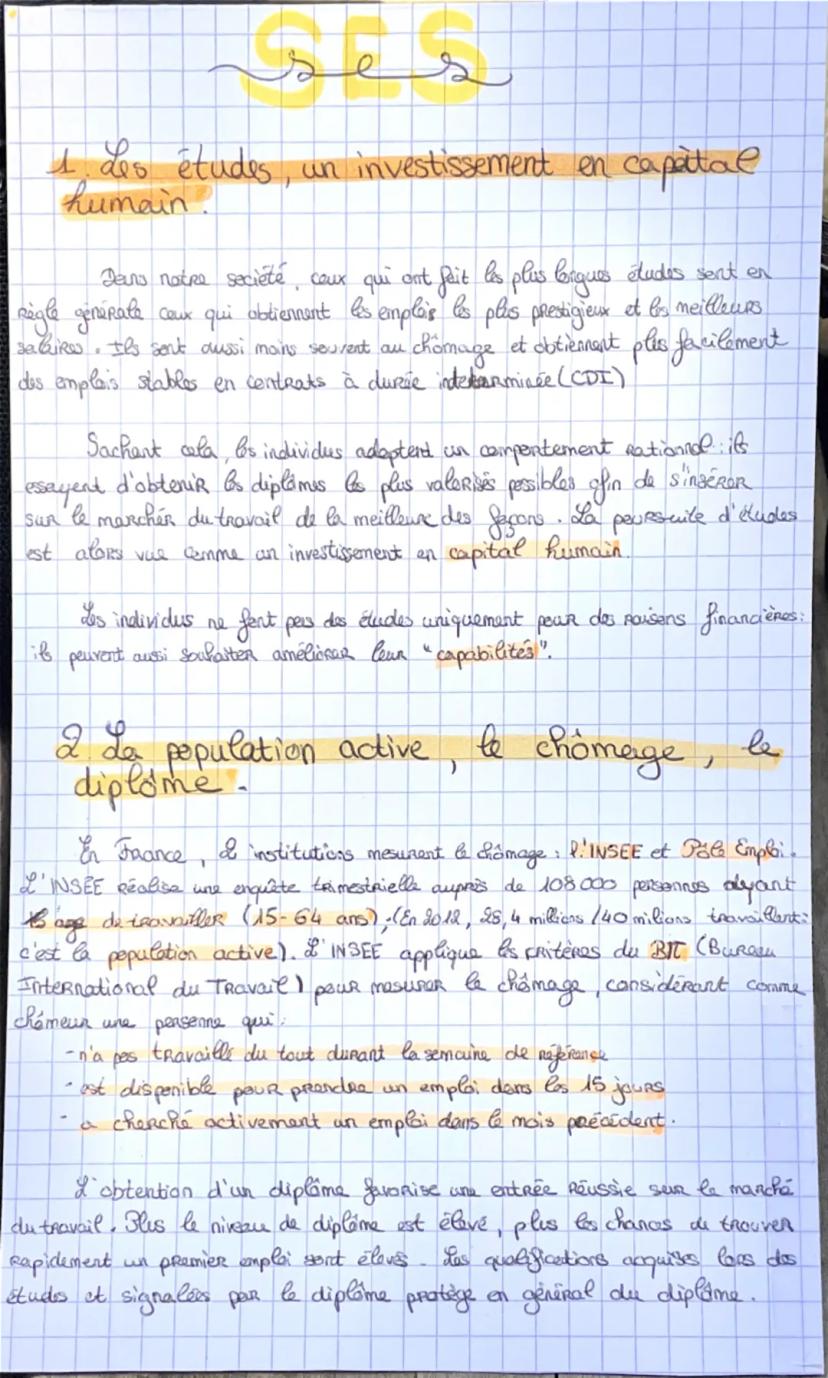 SES
ses
1. Les études, un investissement en capital
humain.
Dans notre société, ceux qui ont fait les plus longues études sont en
règle générale ceux qui obtiennent les emplois les plus prestigieux et les meilleurs
salaires. Ils sont aussi moins souvent au chômage et obtiennent plus facilement
des emplois stables en contrats à durée indeterminée (CDI)
Sachant cela, les individus adoptent un comportement rationnel : ils
essayent d'obtenir les diplômes les plus valorisés possibles afin de s'insérer
sur le marchér du travail de la meilleure des façons. La poursuite d'études
est alors vue comme un investissement en capital humain.
Les individus ne font pas des études uniquement pour des raisons financières :
ils peuvent aussi souhaiter améliorer leur "capabilités".
2. La population active, le chômage, le
diplôme.
En France, 2 institutions mesurent le chômage : l'INSEE et Pôle Emploi.
L'INSEE réalise une enquête trimestrielle auprès de 108 000 personnes ayant
age de travailler (15-64 ans), (En 2012, 28,4 millions /40 milions travaillent :
c'est la population active). L'INSEE applique les critères du BIT (Bureau
International du Travail) pour mesurer le chômage, considérant comme
chômeur une personne qui :
- n'a pas travaillé du tout durant la semaine de référence
- est disponible pour prendre un emploi dans les 15 jours
- a cherché activement un emploi dans le mois précédent.
L'obtention d'un diplôme favorise une entrée réussie sur le marché
du travail. Plus le niveau de diplôme est élevé, plus les chances de trouver
rapidement un premier emploi sont élevés. Les qualifications acquises lors des
études et signalées par le diplôme protège en général du diplôme.